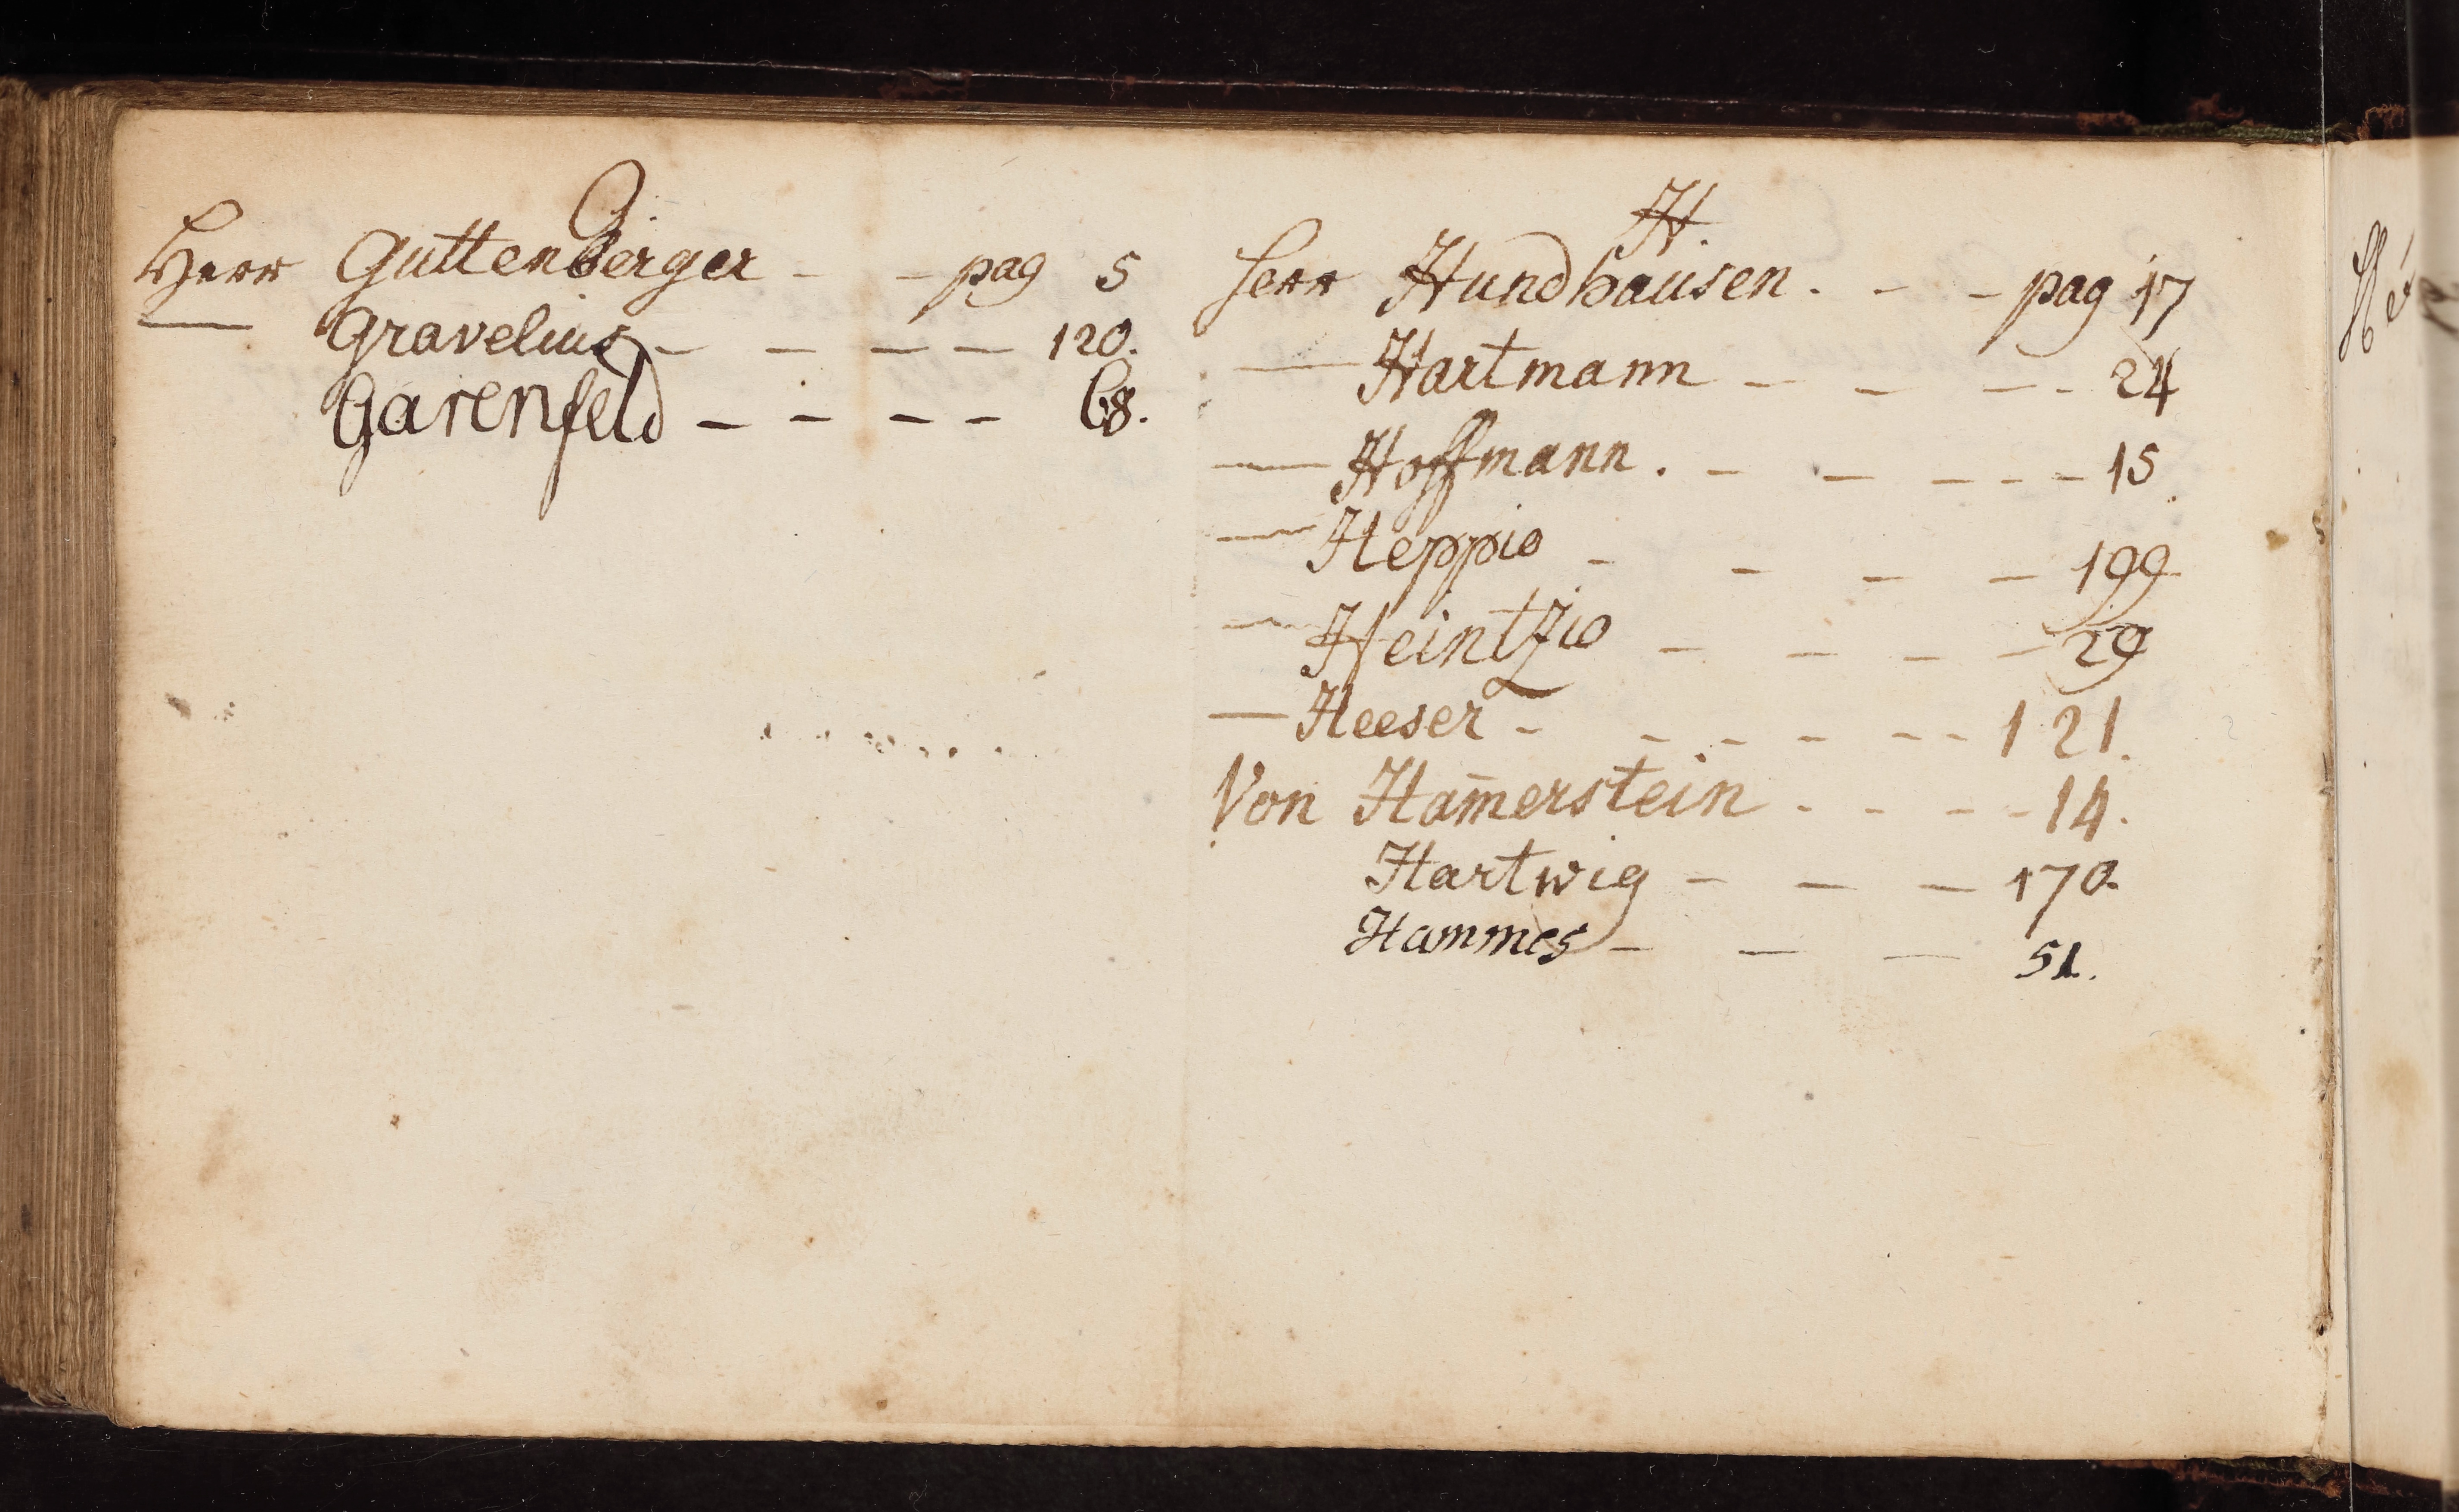 G.
Herr Guttenberger - - pag 5
— Gravelius - - - - 120.
Garenfeld - - - - 68.
H.
Herr Hundhausen . - - pag 17
— Hartmann - - - - 24
— Hoffmann . - - - - - 15
— Heppio - - - - 199
— Heintzio - - - - 29
— Heeser - - - - - - - 121.
Von Ham̄erstein . - - - 14.
Hartwig - - - 170.
Hammes - - - 51.